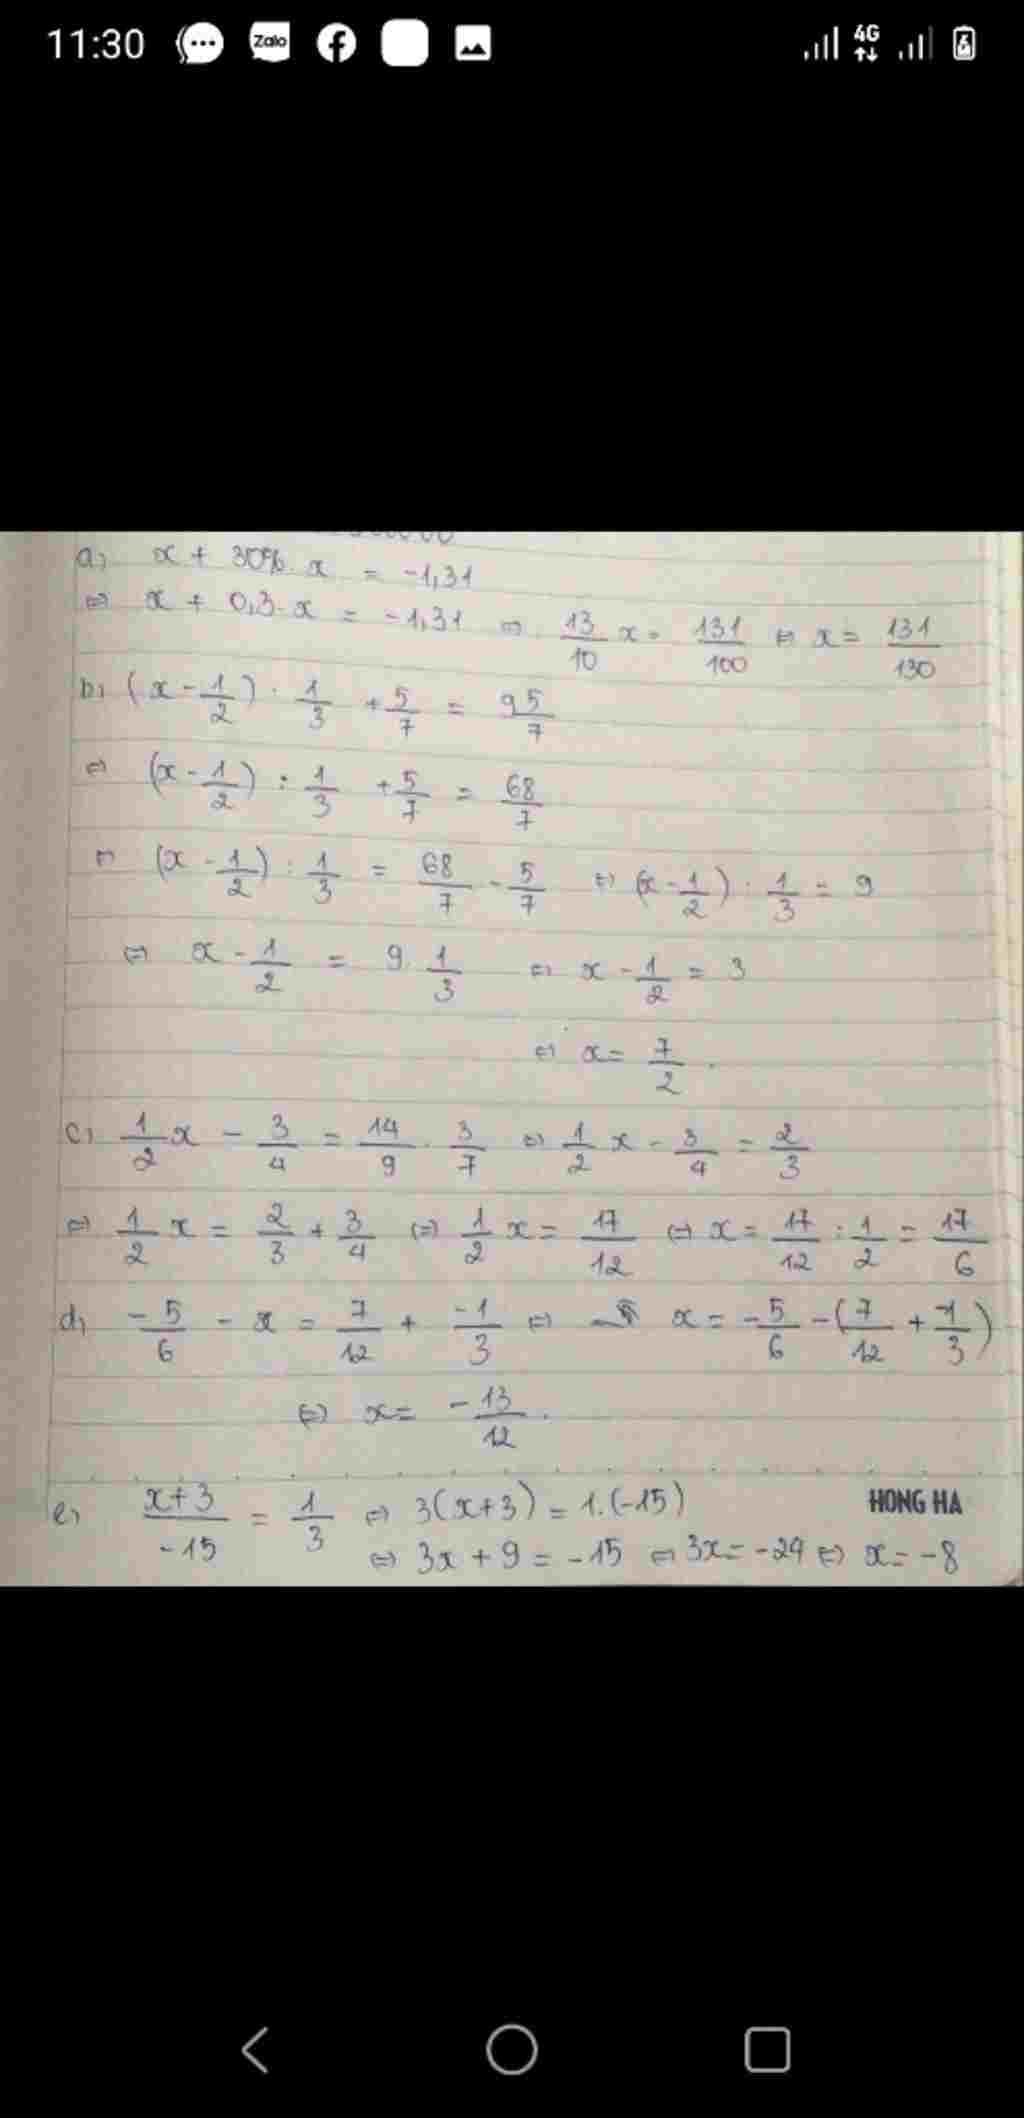 11:30 Zalo 4G
a, x + 30% x = -1,31
⇔ x + 0,3. x = -1,31 ⇔ 13/10 x = 131/100 ⇔ x = 131/130
b, (x - 1/2) : 1/3 + 5/7 = 9 5/7
⇔ (x - 1/2) : 1/3 + 5/7 = 68/7
⇔ (x - 1/2) : 1/3 = 68/7 - 5/7 ⇔ (x - 1/2) : 1/3 = 9
⇔ x - 1/2 = 9. 1/3 ⇔ x - 1/2 = 3
⇔ x = 7/2.
c, 1/2 x - 3/4 = 14/9 . 3/7 ⇔ 1/2 x - 3/4 = 2/3
⇔ 1/2 x = 2/3 + 3/4 ⇔ 1/2 x = 17/12 ⇔ x = 17/12 : 1/2 = 17/6
d, -5/6 - x = 7/12 + -1/3 ⇔ x = -5/6 - (7/12 + -1/3)
⇔ x = -13/12.
e, x+3/-15 = 1/3 ⇔ 3(x+3) = 1.(-15)
HONG HA
⇔ 3x + 9 = -15 ⇔ 3x = -24 ⇔ x = -8